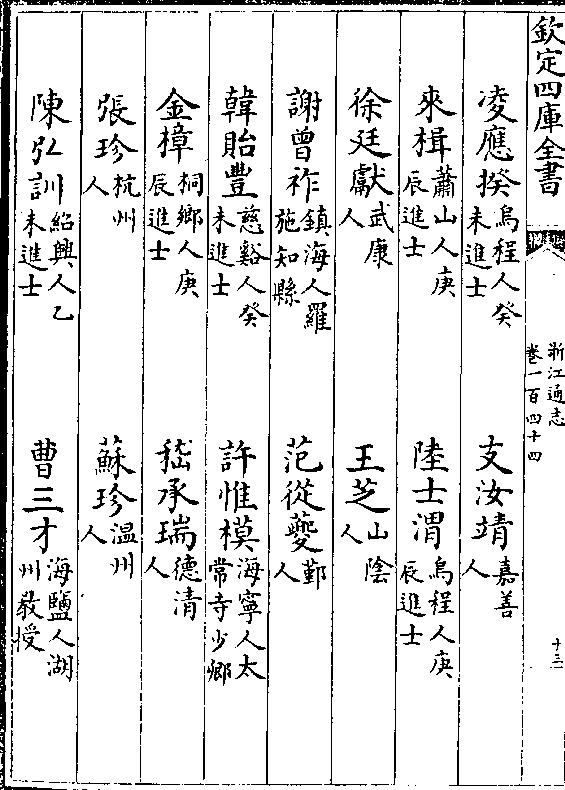 欽定四庫全書
浙江通志
卷一百四十四
十三
凌應揆烏程人癸未進士
支汝靖嘉善人
來楫蕭山人庚辰進士
陸士渭烏程人庚辰進士
徐廷獻武康人
王芝山陰人
謝曾祚鎮海人羅施知縣
范從夔鄞人
韓貽豐慈谿人癸未進士
許惟模海寧人太常寺少卿
金樟桐鄉人庚辰進士
嵇承瑞德清人
張珍杭州人
蘇珍温州人
陳弘訓紹興人乙未進士
曹三才海鹽人湖州教授